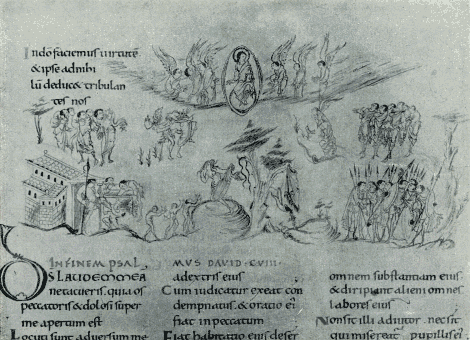 In dō faciemus uirtutē
& ipse ad nihi
lū deduc& tribulan
tes nos
IN FINEM PSAL
OS LATIO EMMEA
ne tacueris quia os
peccatoris & dolosi super
me apertum est
Locuti sunt aduersum me
MUS DAVID CVIII
a dextris eius
Cum iudicatur exeat con
dempnatus & oratio ei
fiat in peccatum
Fiat habitatio eius deser
omnem substantiam eius
& diripiant alieni omnes
labores eius
Non sit illi adiutor nec sit
qui misereat pupillis ei